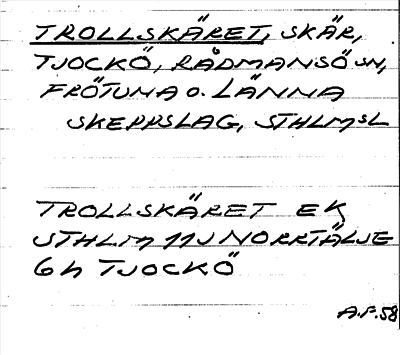 TROLLSKÄRET, SKÄR,
TJOCKÖ, RÅDMANSÖ SN,
FRÖTUNA O. LÄNNA
SKEPPSLAG, STHLMSL
TROLLSKÄRET EK
STHLM 11J NORRTÄLJE
6h TJOCKÖ
A.P.58